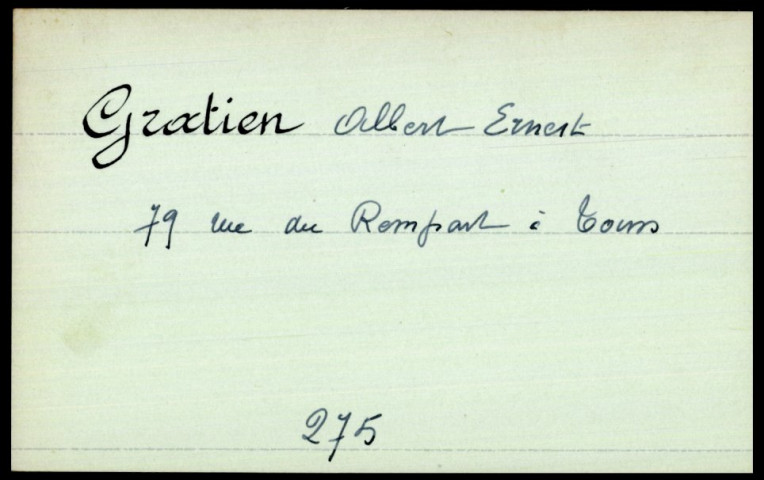 Gratien Albert Ernest
79 rue du Rempart à Tours
275